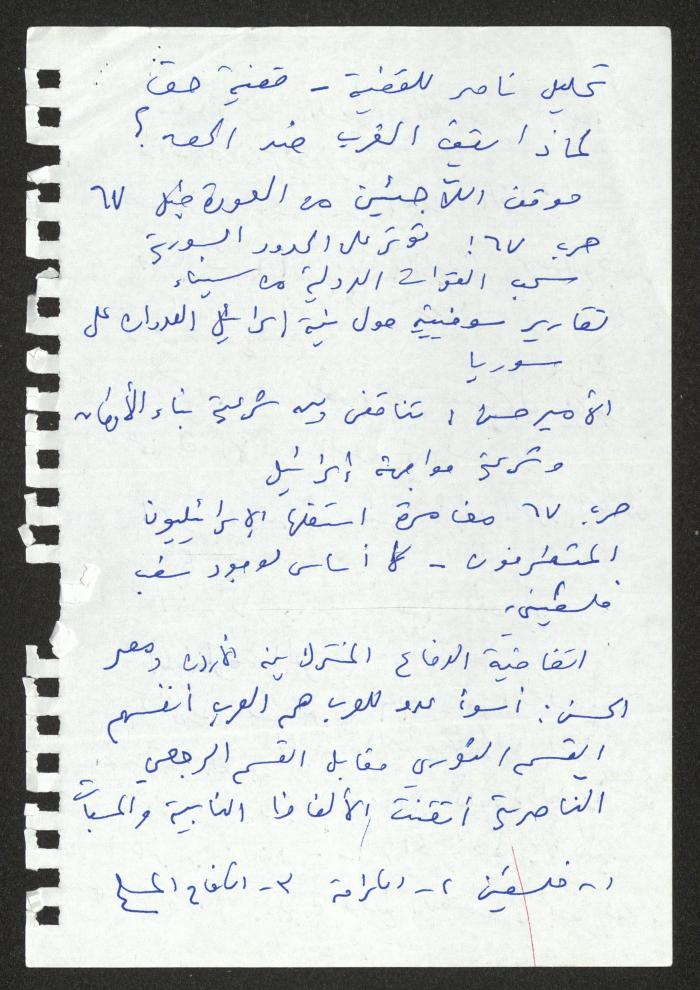 تحليل ناصر للقضية - قضية حق
لماذا يقف الغرب ضد الحق؟
موقف اللاجئين من العودة قبل ٦٧
حرب ٦٧! توتر على الحدود السورية
سحب القوات الدولية من سيناء
تقارير سوفييتية حول نية إسرائيل العدوان على
سوريا
الأمير حسن: تناقض بين شرعية بناء الأوطان
وشرعية مواجهة إسرائيل
حرب ٦٧ مغامرة استغلها الإسرائيليون
المتطرفون - لا أساس لوجود شعب
فلسطيني.
اتفاقية الدفاع المشترك بين الأردن ومصر
الحسن: أسوأ عدو للعرب هم العرب أنفسهم
القسم الثوري مقابل القسم الرجعي
الناصرية أتقنت الألفاظ النابية والمسبات
١- فلسطين ٢- الكرامة ٣- الكفاح المسلح